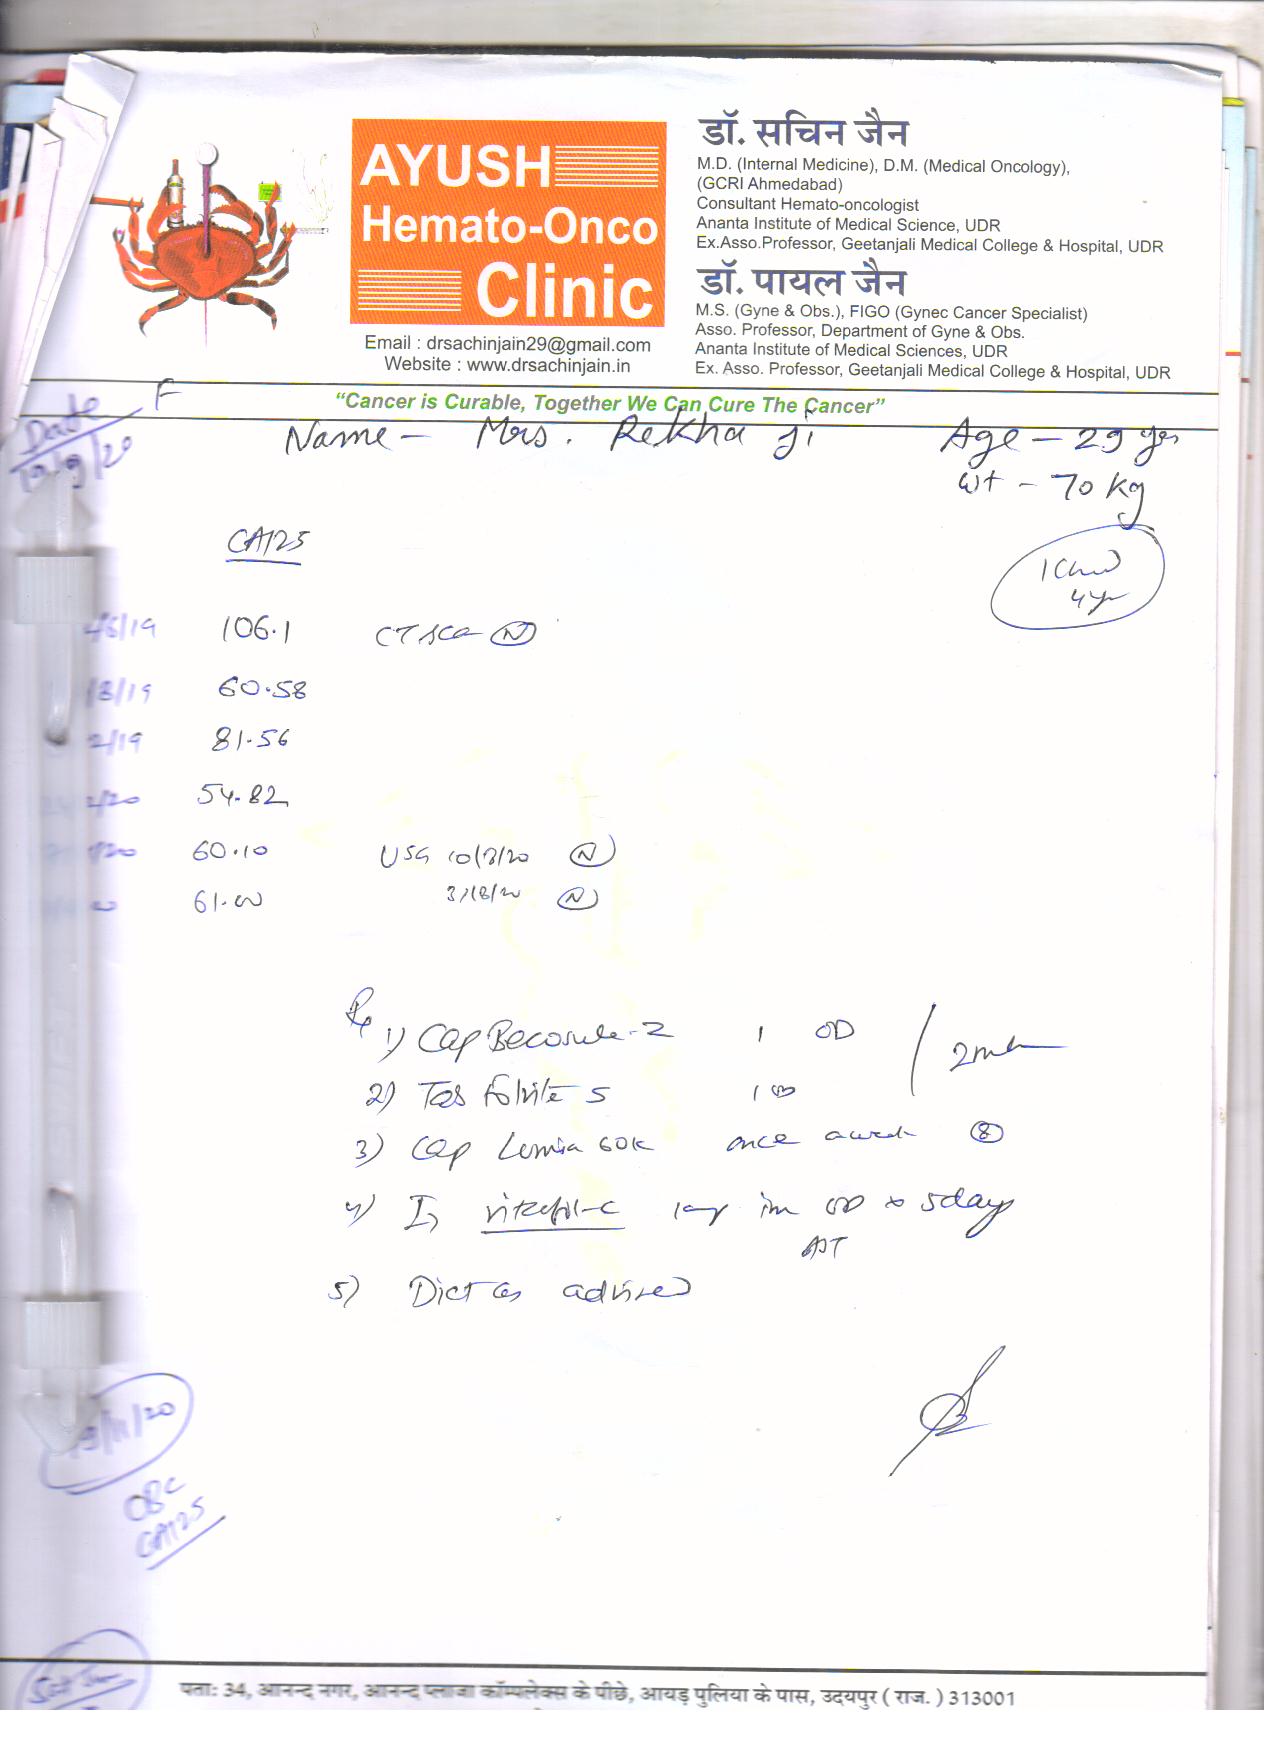 AYUSH
Hemato-Onco
Clinic
Email : drsachinjain29@gmail.com
Website : www.drsachinjain.in
डॉ. सचिन जैन
M.D. (Internal Medicine), D.M. (Medical Oncology),
(GCRI Ahmedabad)
Consultant Hemato-oncologist
Ananta Institute of Medical Science, UDR
Ex.Asso.Professor, Geetanjali Medical College & Hospital, UDR
डॉ. पायल जैन
M.S. (Gyne & Obs.), FIGO (Gynec Cancer Specialist)
Asso. Professor, Department of Gyne & Obs.
Ananta Institute of Medical Sciences, UDR
Ex. Asso. Professor, Geetanjali Medical College & Hospital, UDR
"Cancer is Curable, Together We Can Cure The Cancer"
Date F
/9/20
Name - Mrs. Rekha ji Age - 29 yrs
Wt - 70 kg
1 Child
4 yr
CA125
/19 106.1 CT Scan N
/8/19 60.58
2/19 81.56
/20 54.82
/20 60.10 USG 10/ /20 N
61.00 /8/20 N
Rx 1) Cap Becosule-Z 1 OD
2) Tab folvite 5 1 OD 2 mth
3) Cap Lumia 60K once a week 8
4) Inj im OD x 5 days
AST
5) Diet as advised
/11/20
CBC
CA125
पता: 34, आनन्द नगर, आनन्द प्लाजा कॉम्पलेक्स के पीछे, आयड़ पुलिया के पास, उदयपुर ( राज. ) 313001